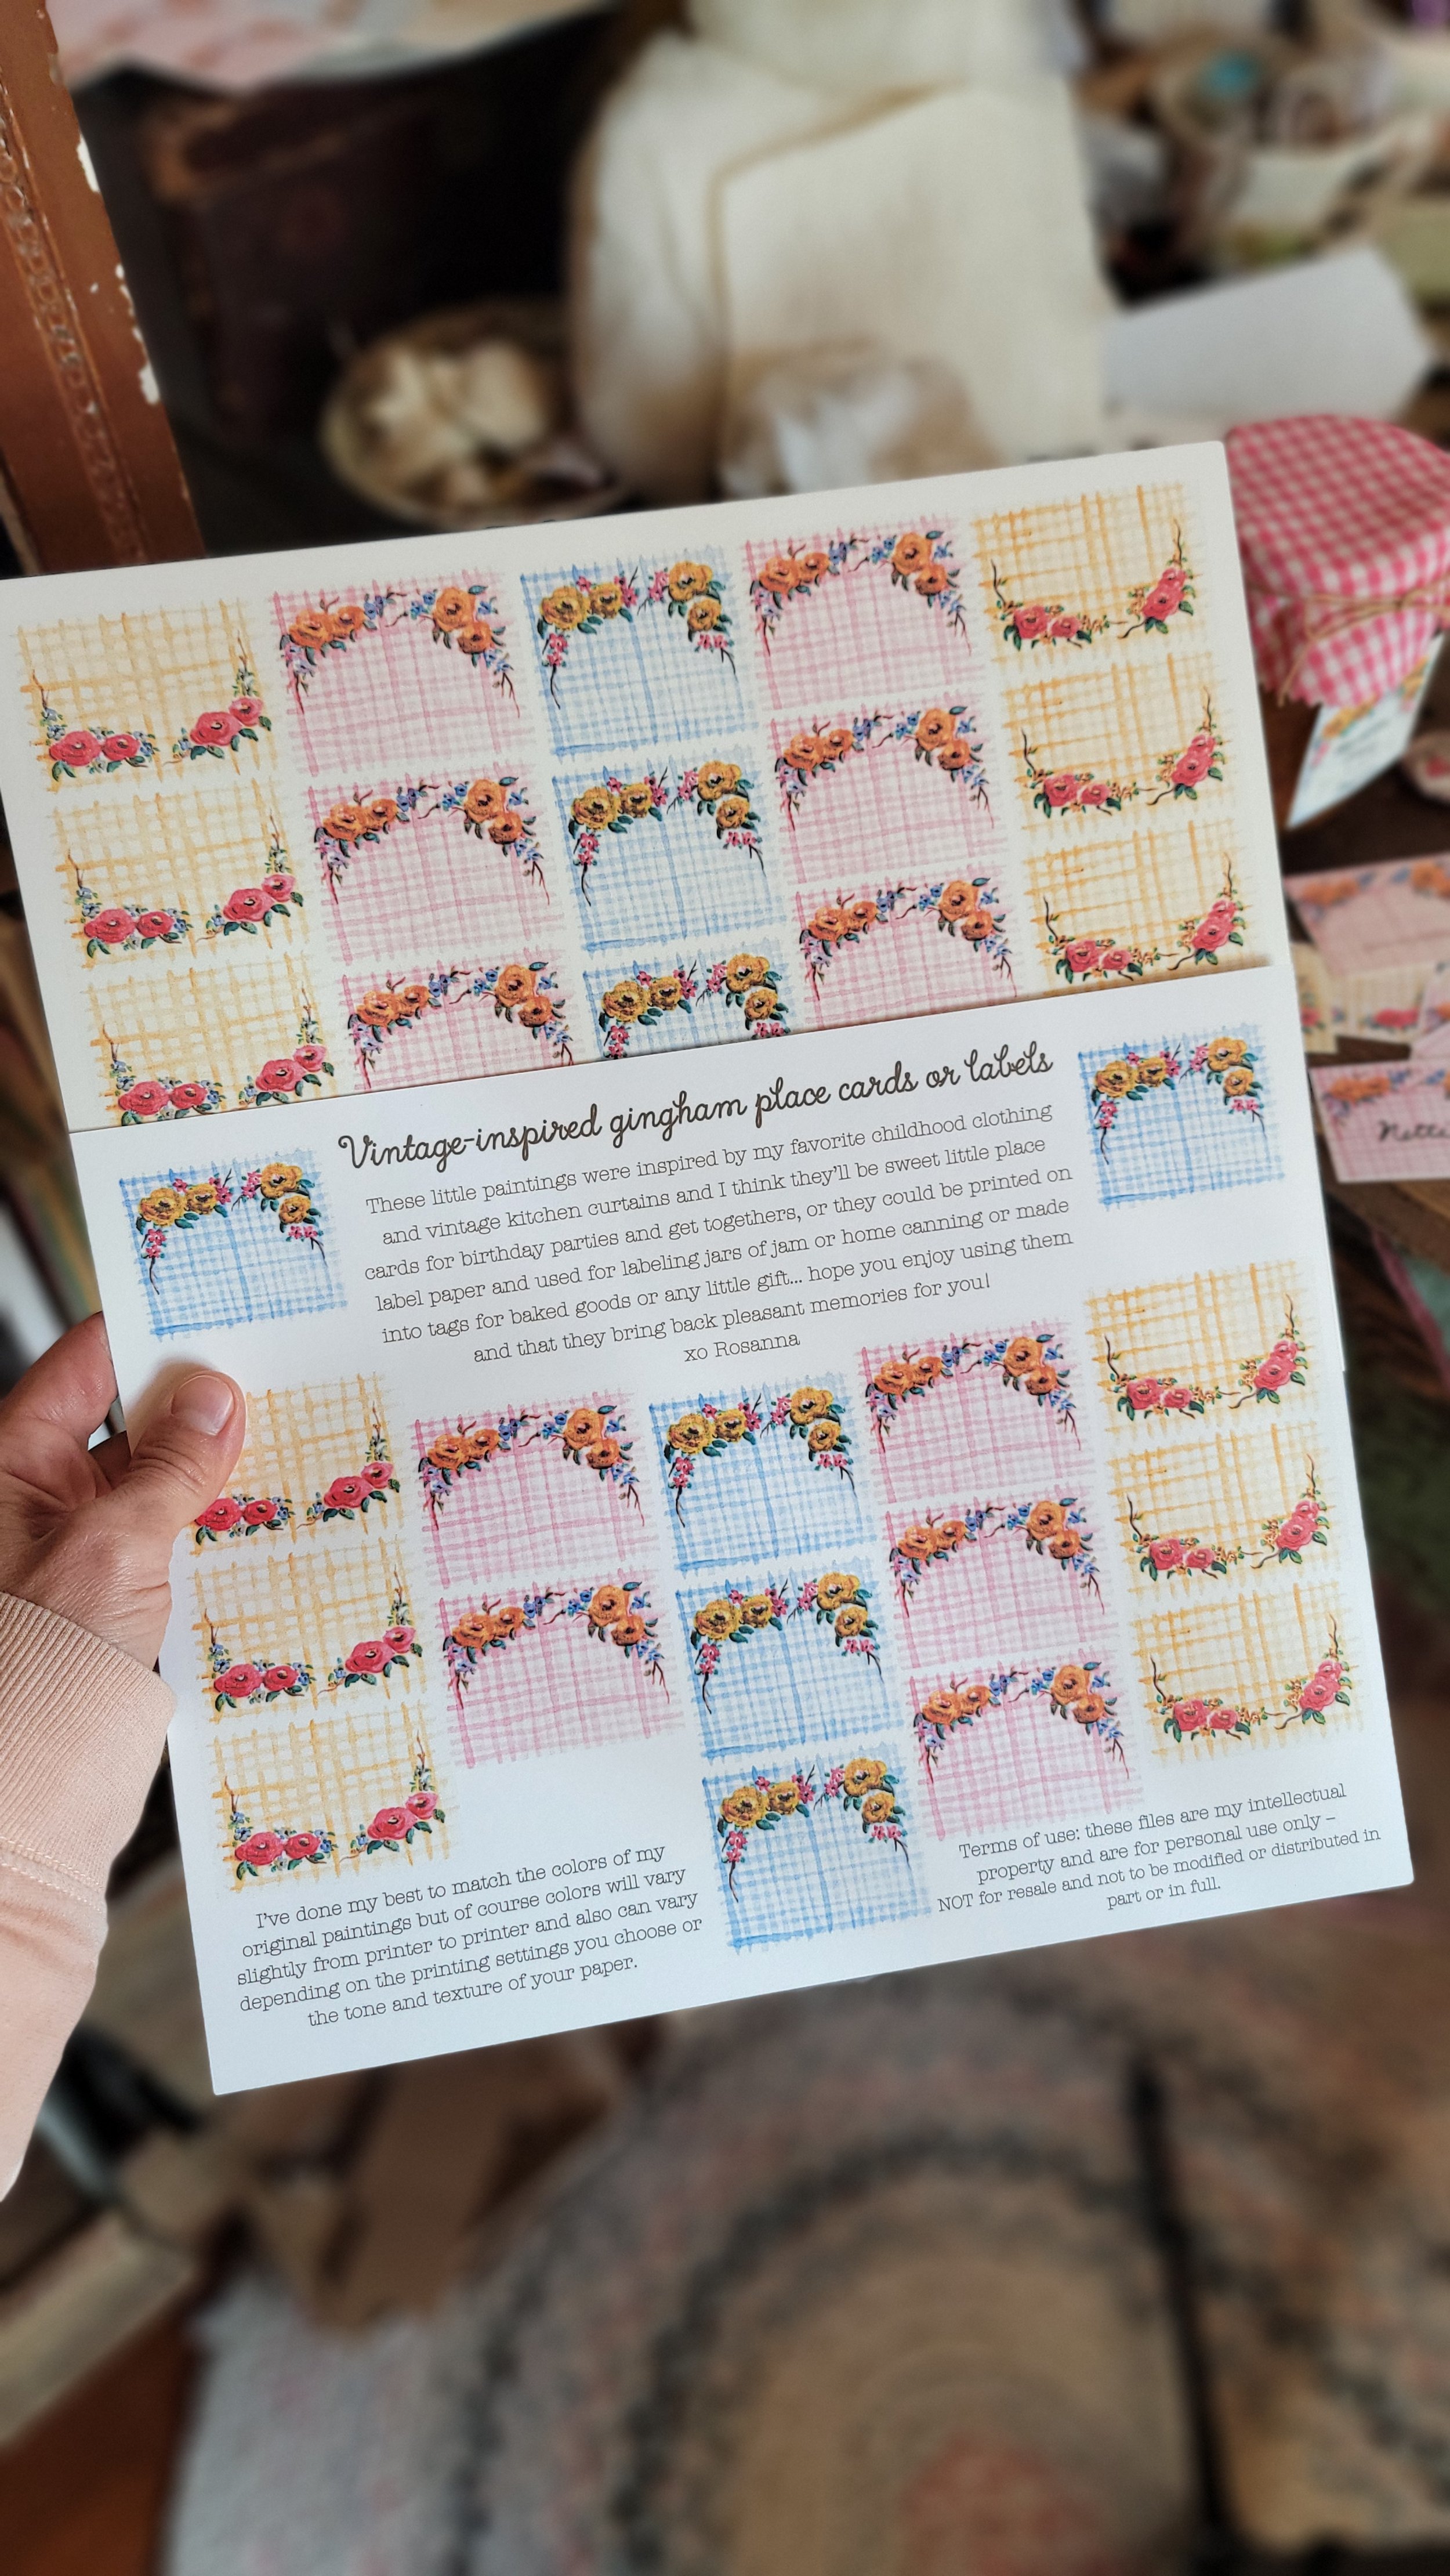 Vintage-inspired gingham place cards or labels
These little paintings were inspired by my favorite childhood clothing
and vintage kitchen curtains and I think they'll be sweet little place
cards for birthday parties and get togethers, or they could be printed on
label paper and used for labeling jars of jam or home canning or made
into tags for baked goods or any little gift... hope you enjoy using them
and that they bring back pleasant memories for you!
xo Rosanna
I've done my best to match the colors of my
original paintings but of course colors will vary
slightly from printer to printer and also can vary
depending on the printing settings you choose or
the tone and texture of your paper.
Terms of use: these files are my intellectual
property and are for personal use only –
NOT for resale and not to be modified or distributed in
part or in full.